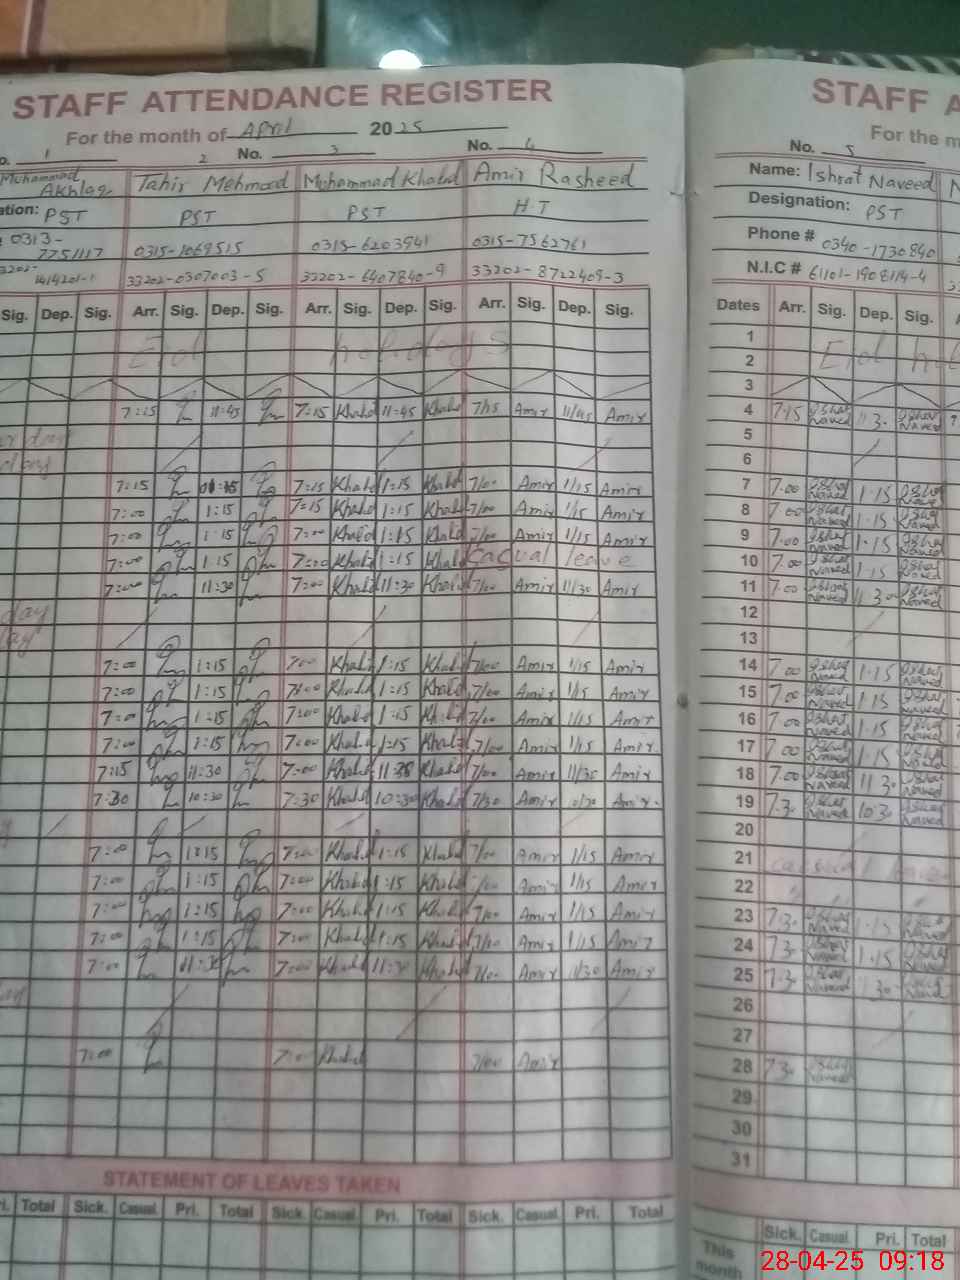 STAFF ATTENDANCE REGISTER
For the month of April 2025
1 2 No. 3 No. 4
Muhammad Akhlaq Tahir Mehmood Muhammad Khalid Amir Rasheed
ation: PST PST PST H.T
0313-7751117 0315-1069515 0315-6203941 0315-7562761
33202-0307003-5 33202-6407840-9 33202-8722409-3
Sig. Dep. Sig. Arr. Sig. Dep. Sig. Arr. Sig. Dep. Sig. Arr. Sig. Dep. Sig.
Eid holidays
7:15 11:45 7:15 Khalid 11:45 Khalid 7/15 Amir 11/45 Amir
7:15 01:15 7:15 Khalid 1:15 Khalid 7/00 Amir 1/15 Amir
7:00 1:15 7:15 Khalid 1:15 Khalid 7/00 Amir 1/15 Amir
7:00 1:15 7:00 Khalid 1:15 Khalid 7/00 Amir 1/15 Amir
7:00 1:15 7:00 Khalid 1:15 Khalid Casual leave
7:00 11:30 7:00 Khalid 11:30 Khalid 7/00 Amir 11/30 Amir
day
7:00 1:15 7:00 Khalid 1:15 Khalid 7/00 Amir 1/15 Amir
7:00 1:15 7:00 Khalid 1:15 Khalid 7/00 Amir 1/15 Amir
7:00 1:15 7:00 Khalid 1:15 Khalid 7/00 Amir 1/15 Amir
7:00 1:15 7:00 Khalid 1:15 Khalid 7/00 Amir 1/15 Amir
7:15 11:30 7:00 Khalid 11:30 Khalid 7/00 Amir 11/30 Amir
7:30 10:30 7:30 Khalid 10:30 Khalid 7/30 Amir 10/30 Amir
7:00 1:15 7:00 Khalid 1:15 Khalid 7/00 Amir 1/15 Amir
7:00 1:15 7:00 Khalid 1:15 Khalid 7/00 Amir 1/15 Amir
7:00 1:15 7:00 Khalid 1:15 Khalid 7/00 Amir 1/15 Amir
7:00 1:15 7:00 Khalid 1:15 Khalid 7/00 Amir 1/15 Amir
7:00 11:30 7:00 Khalid 11:30 Khalid 7/00 Amir 11/30 Amir
7:00 7:00 Khalid 7/00 Amir
STATEMENT OF LEAVES TAKEN
Total Sick. Casual Pri. Total Sick. Casual Pri. Total Sick. Casual Pri. Total
STAFF A
For the m
No. 5
Name: Ishrat Naveed
Designation: PST
Phone # 0340-1730840
N.I.C # 61101-1908114-4
Dates Arr. Sig. Dep. Sig.
1
2 Eid hol
3
4 7:15 Ishrat Naveed 11:30 Ishrat Naveed
5
6
7 7:00 Ishrat Naveed 1:15 Ishrat Naveed
8 7:00 Ishrat Naveed 1:15 Ishrat Naveed
9 7:00 Ishrat Naveed 1:15 Ishrat Naveed
10 7:00 Ishrat Naveed 1:15 Ishrat Naveed
11 7:00 Ishrat Naveed 11:30 Ishrat Naveed
12
13
14 7:00 Ishrat Naveed 1:15 Ishrat Naveed
15 7:00 Ishrat Naveed 1:15 Ishrat Naveed
16 7:00 Ishrat Naveed 1:15 Ishrat Naveed
17 7:00 Ishrat Naveed 1:15 Ishrat Naveed
18 7:00 Ishrat Naveed 11:30 Ishrat Naveed
19 7:30 Ishrat Naveed 10:30 Ishrat Naveed
20
21
22
23 7:30 Ishrat Naveed 1:15 Ishrat Naveed
24 7:30 Ishrat Naveed 1:15 Ishrat Naveed
25 7:30 Ishrat Naveed Naveed
26
27
28 7:30 Ishrat Naveed
29
30
31
Sick. Casual Pri. Total
This month
28-04-25 09:18